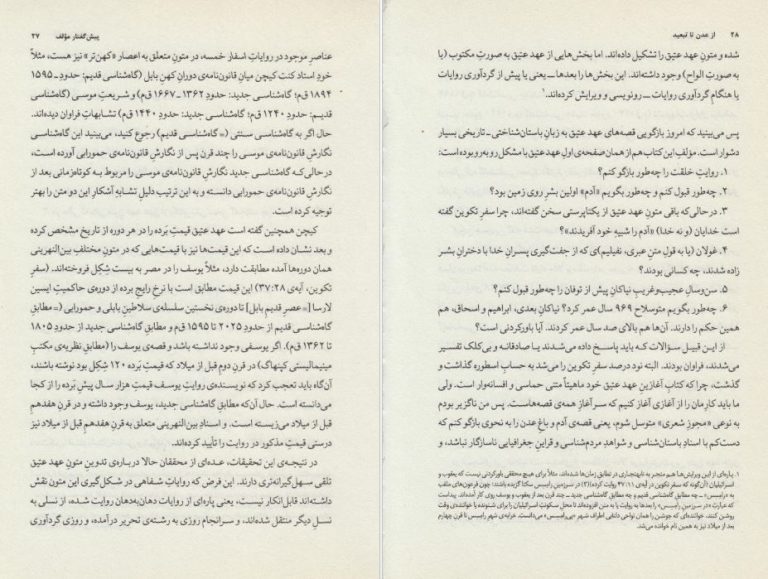 پیش‌گفتار مؤلف ۲۷
عناصرِ موجود در روایاتِ اسفار خمسه، در متونِ متعلق به اعصار «کهن‌تر» نیز هست، مثلاً
خودِ استاد کنت کیچن میانِ قانون‌نامه‌ی دورانِ کهنِ بابل (گاه‌شناسی قدیم: حدودِ ۱۵۹۵ ـ
۱۸۹۴ ق‌م؛ گاه‌شناسی جدید: حدودِ ۱۳۶۲ ـ ۱۶۶۷ ق‌م) و شریعتِ موسی (گاه‌شناسی
قدیم: حدودِ ۱۲۴۰ ق‌م؛ گاه‌شناسی جدید: حدودِ ۱۴۴۰ ق‌م) تشابهاتِ فراوان دیده‌اند.
حال اگر به گاه‌شناسی سنتی (= گاه‌شناسی قدیم) رجوع کنید، می‌بینید این گاه‌شناسی
نگارشِ قانون‌نامه‌ی موسی را چند قرن پس از نگارشِ قانون‌نامه‌ی حمورابی آورده است،
در حالی که گاه‌شناسی جدید نگارشِ قانون‌نامه‌ی موسی را مربوط به کوتاه‌زمانی بعد از
نگارشِ قانون‌نامه‌ی حمورابی دانسته و به این ترتیب دلیلِ تشابهِ آشکارِ این دو متن را بهتر
توجیه کرده است.
کیچن همچنین گفته است عهد عتیق قیمتِ برده را در هر دوره از تاریخ مشخص کرده
و بعد نشان داده است که این قیمت‌ها نیز با قیمت‌هایی که در متونِ مختلفِ بین‌النهرینی
همان دوره‌ها آمده مطابقت دارد، مثلاً یوسف را در مصر به بیست شِکِل فروخته‌اند. (سفرِ
تکوین، آیه‌ی ۳۷:۲۸) این قیمت مطابق است با نرخِ رایجِ برده از دوره‌ی حاکمیتِ ایسین
لارسا [= عصرِ قدیم بابل] تا دوره‌ی نخستین سلسله‌ی سلاطینِ بابلی و حمورابی (= مطابقِ
گاه‌شناسی قدیم از حدودِ ۲۰۲۵ تا ۱۵۹۵ ق‌م و مطابقِ گاه‌شناسی جدید از حدودِ ۱۸۰۵
تا ۱۳۶۲ ق‌م). اگر یوسفی وجود نداشته باشد و قصه‌ی یوسف را (مطابقِ نظریه‌ی مکتبِ
مینیمالیستی کپنهاگ) در قرنِ دومِ قبل از میلاد که قیمتِ برده ۱۲۰ شِکِل بود نوشته باشند،
آن‌گاه باید تعجب کرد که نویسنده‌ی روایتِ یوسف قیمتِ هزار سال پیشِ برده را از کجا
می‌دانسته است. حال آن‌که مطابقِ گاه‌شناسی جدید، یوسف وجود داشته و در قرنِ هفدهم
قبل از میلاد می‌زیسته است. و اسنادِ بین‌النهرینی متعلق به قرنِ هفدهم قبل از میلاد نیز
درستی قیمتِ مذکور در روایت را تأیید کرده‌اند.
در نتیجه‌ی این تحقیقات، عده‌ای از محققان حالا درباره‌ی تدوینِ متونِ عهد عتیق
تلقی سهل‌گیرانه‌تری دارند. این فرض که روایاتِ شفاهی در شکل‌گیری این متون نقش
داشته‌اند قابل انکار نیست، یعنی پاره‌ای از روایات دهان‌به‌دهان روایت شده، از نسلی به
نسلِ دیگر منتقل شده‌اند، و سرانجام روزی به رشته‌ی تحریر درآمده، و روزی گردآوری
۲۸ از عدن تا تبعید
شده و متونِ عهد عتیق را تشکیل داده‌اند. اما بخش‌هایی از عهد عتیق به صورتِ مکتوب (یا
به صورتِ الواح) وجود داشته‌اند. این بخش‌ها را بعدها ـ یعنی یا پیش از گردآوری روایات
یا هنگامِ گردآوری روایات ـ رونویسی و ویرایش کرده‌اند.۱
پس می‌بینید که امروز بازگویی قصه‌های عهد عتیق به زبانِ باستان‌شناختی ـ تاریخی بسیار
دشوار است. مؤلفِ این کتاب هم از همان صفحه‌ی اولِ عهد عتیق با مشکل روبه‌رو بوده است:
۱. روایتِ خلقت را چه‌طور بازگو کنم؟
۲. چه‌طور قبول کنم و چه‌طور بگویم «آدم» اولین بشرِ روی زمین بود؟
۳. در حالی که باقی متونِ عهد عتیق از یکتاپرستی سخن گفته‌اند، چرا سفرِ تکوین گفته
است خدایان (و نه خدا) «آدم را شبیهِ خود آفریدند»؟
۴. غولان (یا به قولِ متنِ عبری، نفیلیم)ی که از جفت‌گیری پسرانِ خدا با دخترانِ بشر
زاده شدند، چه کسانی بودند؟
۵. سن‌وسالِ عجیب‌وغریبِ نیاکانِ پیش از توفان را چه‌طور قبول کنم؟
۶. چه‌طور بگویم متوسلاح ۹۶۹ سال عمر کرد؟ نیاکانِ بعدی، ابراهیم و اسحاق، هم
همین حکم را دارند. آن‌ها هم بالای صد سال عمر کردند. آیا باورکردنی است؟
از این قبیل سؤالات که باید پاسخ داده می‌شدند یا صادقانه و بی‌کلک تفسیر
می‌شدند، فراوان بودند. البته نود درصدِ سفرِ تکوین را می‌شد به حسابِ اسطوره گذاشت و
گذشت، چرا که کتابِ آغازینِ عهد عتیق خود ماهیتاً متنی حماسی و افسانه‌وار است. ولی
ما باید کارمان را از آغازی آغاز کنیم که سرآغازِ همه‌ی قصه‌هاست. پس من ناگزیر بودم
به نوعی «مجوزِ شعری» متوسل شوم، یعنی قصه‌ی آدم و باغِ عدن را به نحوی بازگو کنم که
دست‌کم با اسنادِ باستان‌شناسی و شواهدِ مردم‌شناسی و قراینِ جغرافیایی ناسازگار نباشد، و
۱. پاره‌ای از این ویرایش‌ها هم منجر به نابهنجاری در تطابقِ زمان‌ها شده‌اند، مثلاً برای هیچ محققی باورکردنی نیست که یعقوب و
اسرائیلیان (آن‌گونه که سفر تکوین در آیه‌ی ۴۷:۱۱ روایت کرده)(۳) در سرزمینِ رامسِس سکنا گزیده باشند؛ چون فرعون‌های ملقب
به «رامسِس» ـ چه مطابقِ گاه‌شناسی قدیم و چه مطابقِ گاه‌شناسی جدید ـ چند قرن بعد از یعقوب و یوسف روی کار آمده‌اند. پیداست
که عبارتِ «در سرزمینِ رامسِس» را بعدها به روایت یا به متن افزوده‌اند تا محلِ سکونتِ اسرائیلیان را برای شنونده یا خواننده‌ی وقت
روشن کنند، خواننده‌ای که جوشن را همان نواحی دلتایی اطرافِ شهرِ «پی‌رامسِس» می‌دانست. خرابه‌ی شهرِ رامسِس تا قرنِ چهارم
بعد از میلاد نیز به همین نام خوانده می‌شد.